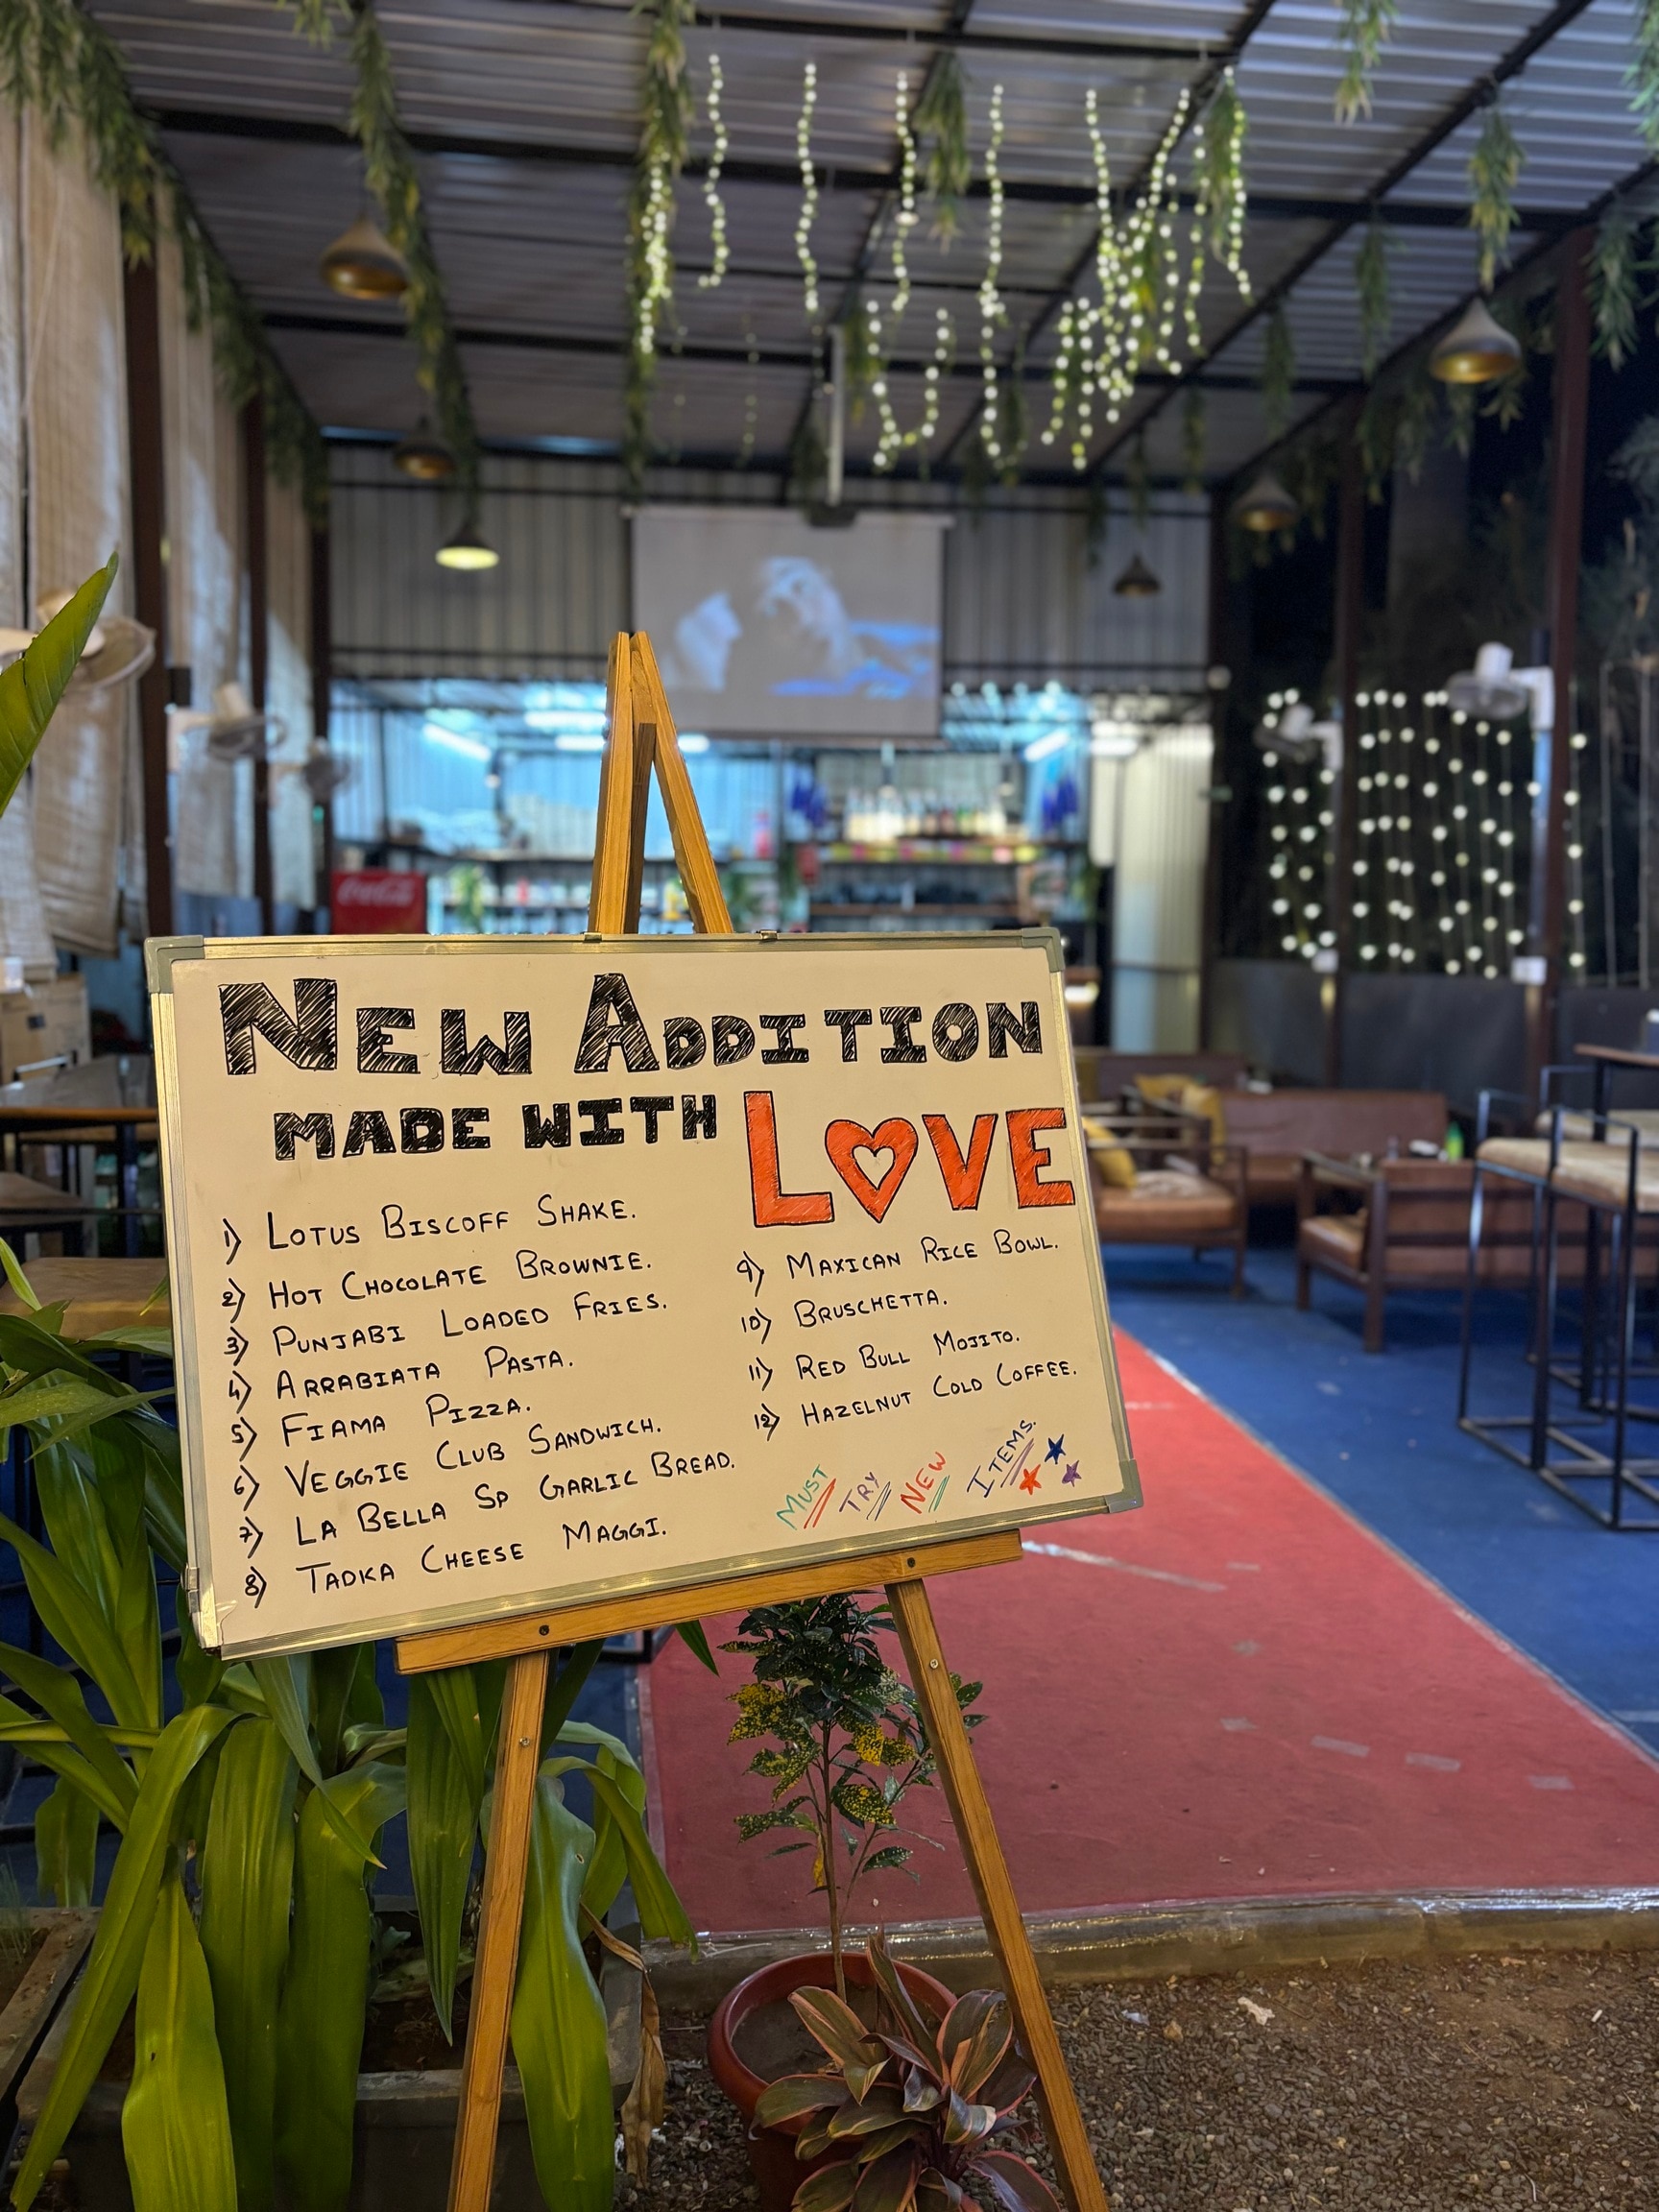 Coca-Cola
NEW ADDITION
MADE WITH LOVE
1) LOTUS BISCOFF SHAKE.
2) HOT CHOCOLATE BROWNIE.
3) PUNJABI LOADED FRIES.
4) ARRABIATA PASTA.
5) FIAMA PIZZA.
6) VEGGIE CLUB SANDWICH.
7) LA BELLA SP GARLIC BREAD.
8) TADKA CHEESE MAGGI.
9) MAXICAN RICE BOWL.
10) BRUSCHETTA.
11) RED BULL MOJITO.
12) HAZELNUT COLD COFFEE.
MUST TRY NEW ITEMS.